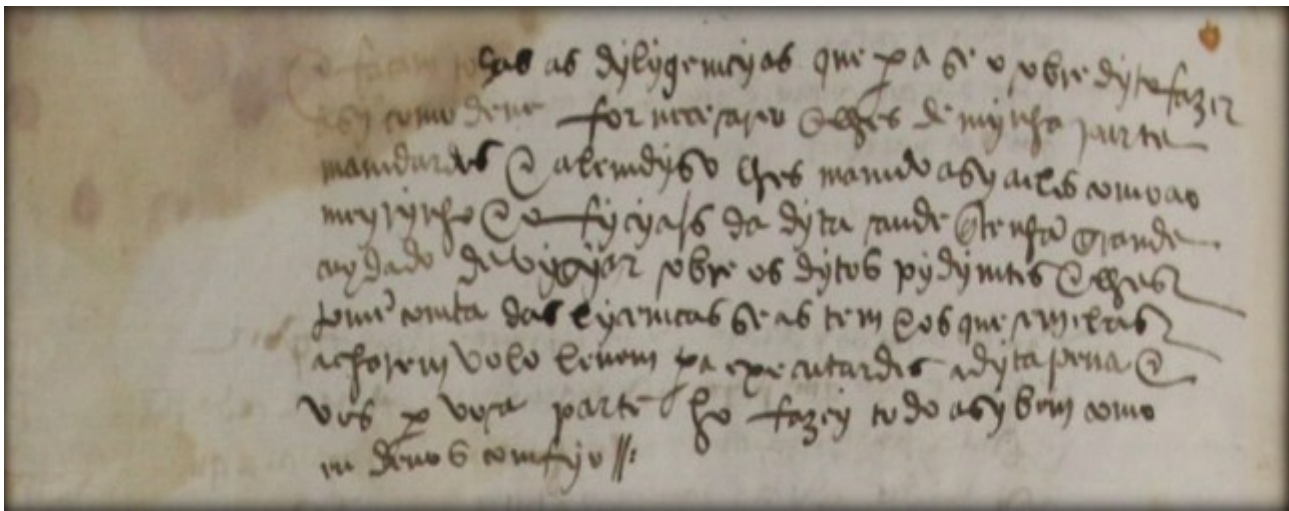 façam todas as dyligemcyas que pa se o sobre dyto fazer
asy como deue for neceçaryo E lhes de mynha parte
mamdardes E alem dyso lhes mamdo asy a eles como ao
meyrynho E ofycyaes da dyta çidade q̃ tenhã grande
cuydado de vygyar sobre os dytos pydymtes E lhes
tomẽ comta das lycemcas se as tem E os que sem elas
acharem volo levem pa executardes a dyta pena E
vos p vosa parte ho fazey todo asy bem como
eu de vos comfyo //: